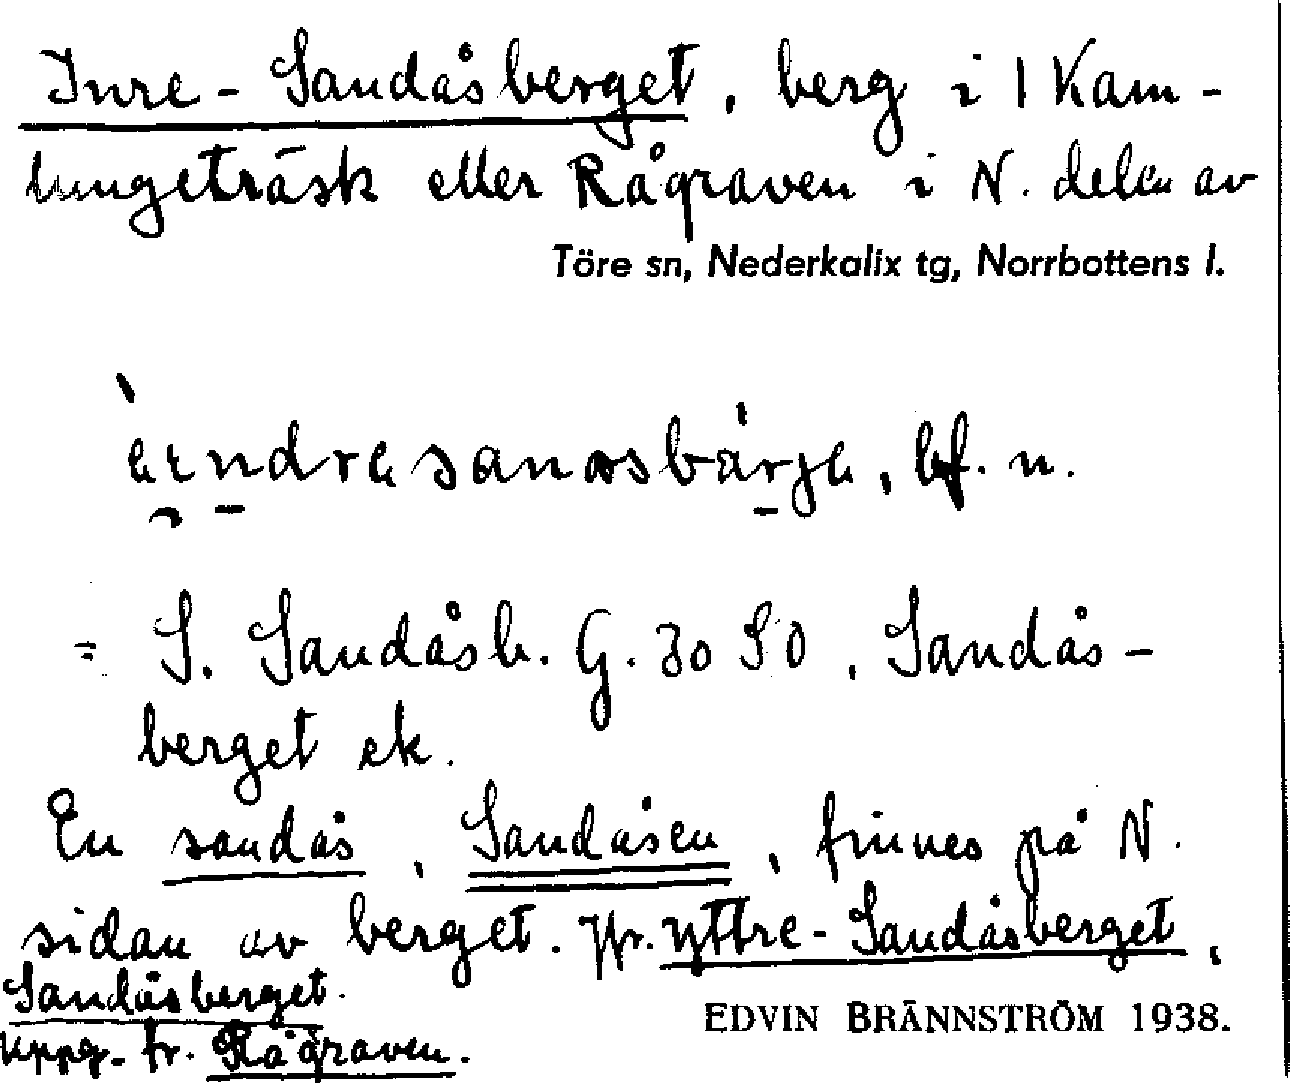 Inre-Sandåsberget, berg i 1 Kam-
lungeträsk eller Rågraven i N. delen av
Töre sn, Nederkalix tg, Norrbottens l.
bf. n.
= S. Sandåsb. G. 30 SO, Sandås-
berget ek.
En sandås, Sandåsen, finnes på N.
sidan av berget. Jfr. Yttre-Sandåsberget,
Sandåsberget.
EDVIN BRÄNNSTRÖM 1938.
Uppg. fr. Rågraven.